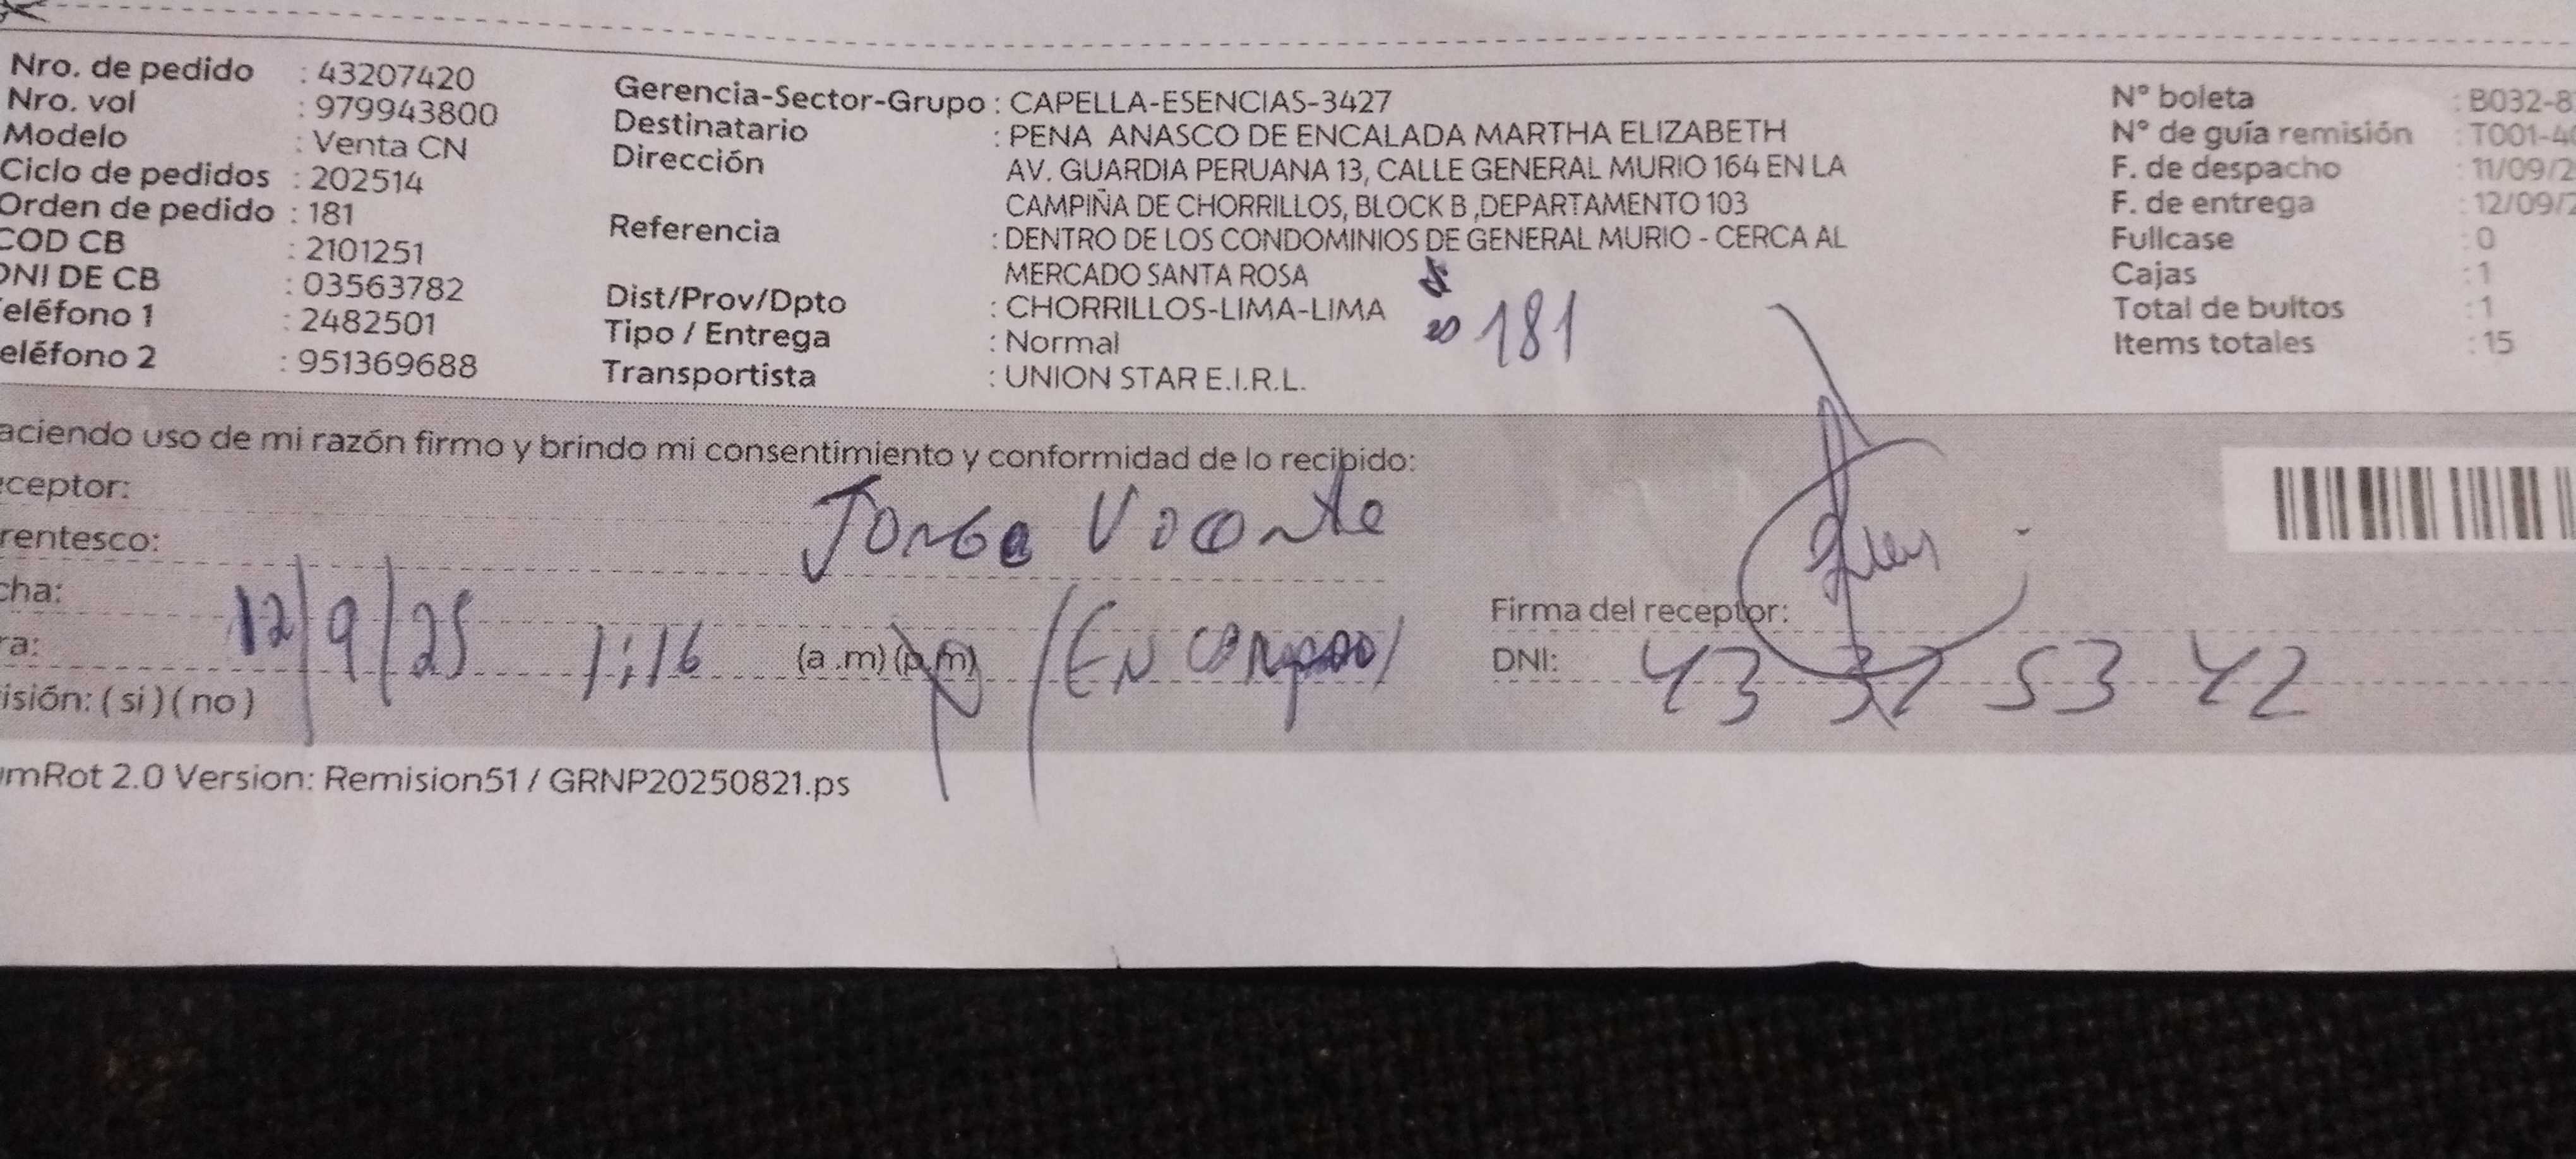 Nro. de pedido : 43207420
Nro. vol : 979943800
Modelo : Venta CN
Ciclo de pedidos : 202514
Orden de pedido : 181
COD CB : 2101251
DNI DE CB : 03563782
eléfono 1 : 2482501
eléfono 2 : 951369688
Gerencia-Sector-Grupo : CAPELLA-ESENCIAS-3427
Destinatario : PENA ANASCO DE ENCALADA MARTHA ELIZABETH
Dirección AV. GUARDIA PERUANA 13, CALLE GENERAL MURIO 164 EN LA
CAMPIÑA DE CHORRILLOS, BLOCK B ,DEPARTAMENTO 103
Referencia : DENTRO DE LOS CONDOMINIOS DE GENERAL MURIO - CERCA AL
MERCADO SANTA ROSA
Dist/Prov/Dpto : CHORRILLOS-LIMA-LIMA
Tipo / Entrega : Normal
Transportista : UNION STAR E.I.R.L.
181
N° boleta : B032-8
N° de guía remisión : T001-4
F. de despacho : 11/09/2
F. de entrega : 12/09/2
Fullcase : 0
Cajas : 1
Total de bultos : 1
Items totales : 15
aciendo uso de mi razón firmo y brindo mi consentimiento y conformidad de lo recibido:
ceptor: Jorge Vicente
rentesco:
cha: 12/9/25
ra: 1:16 (a .m) (p.m)
isión: ( si ) ( no )
Firma del receptor:
DNI: 43 37 53 42
mRot 2.0 Version: Remision51 / GRNP20250821.ps